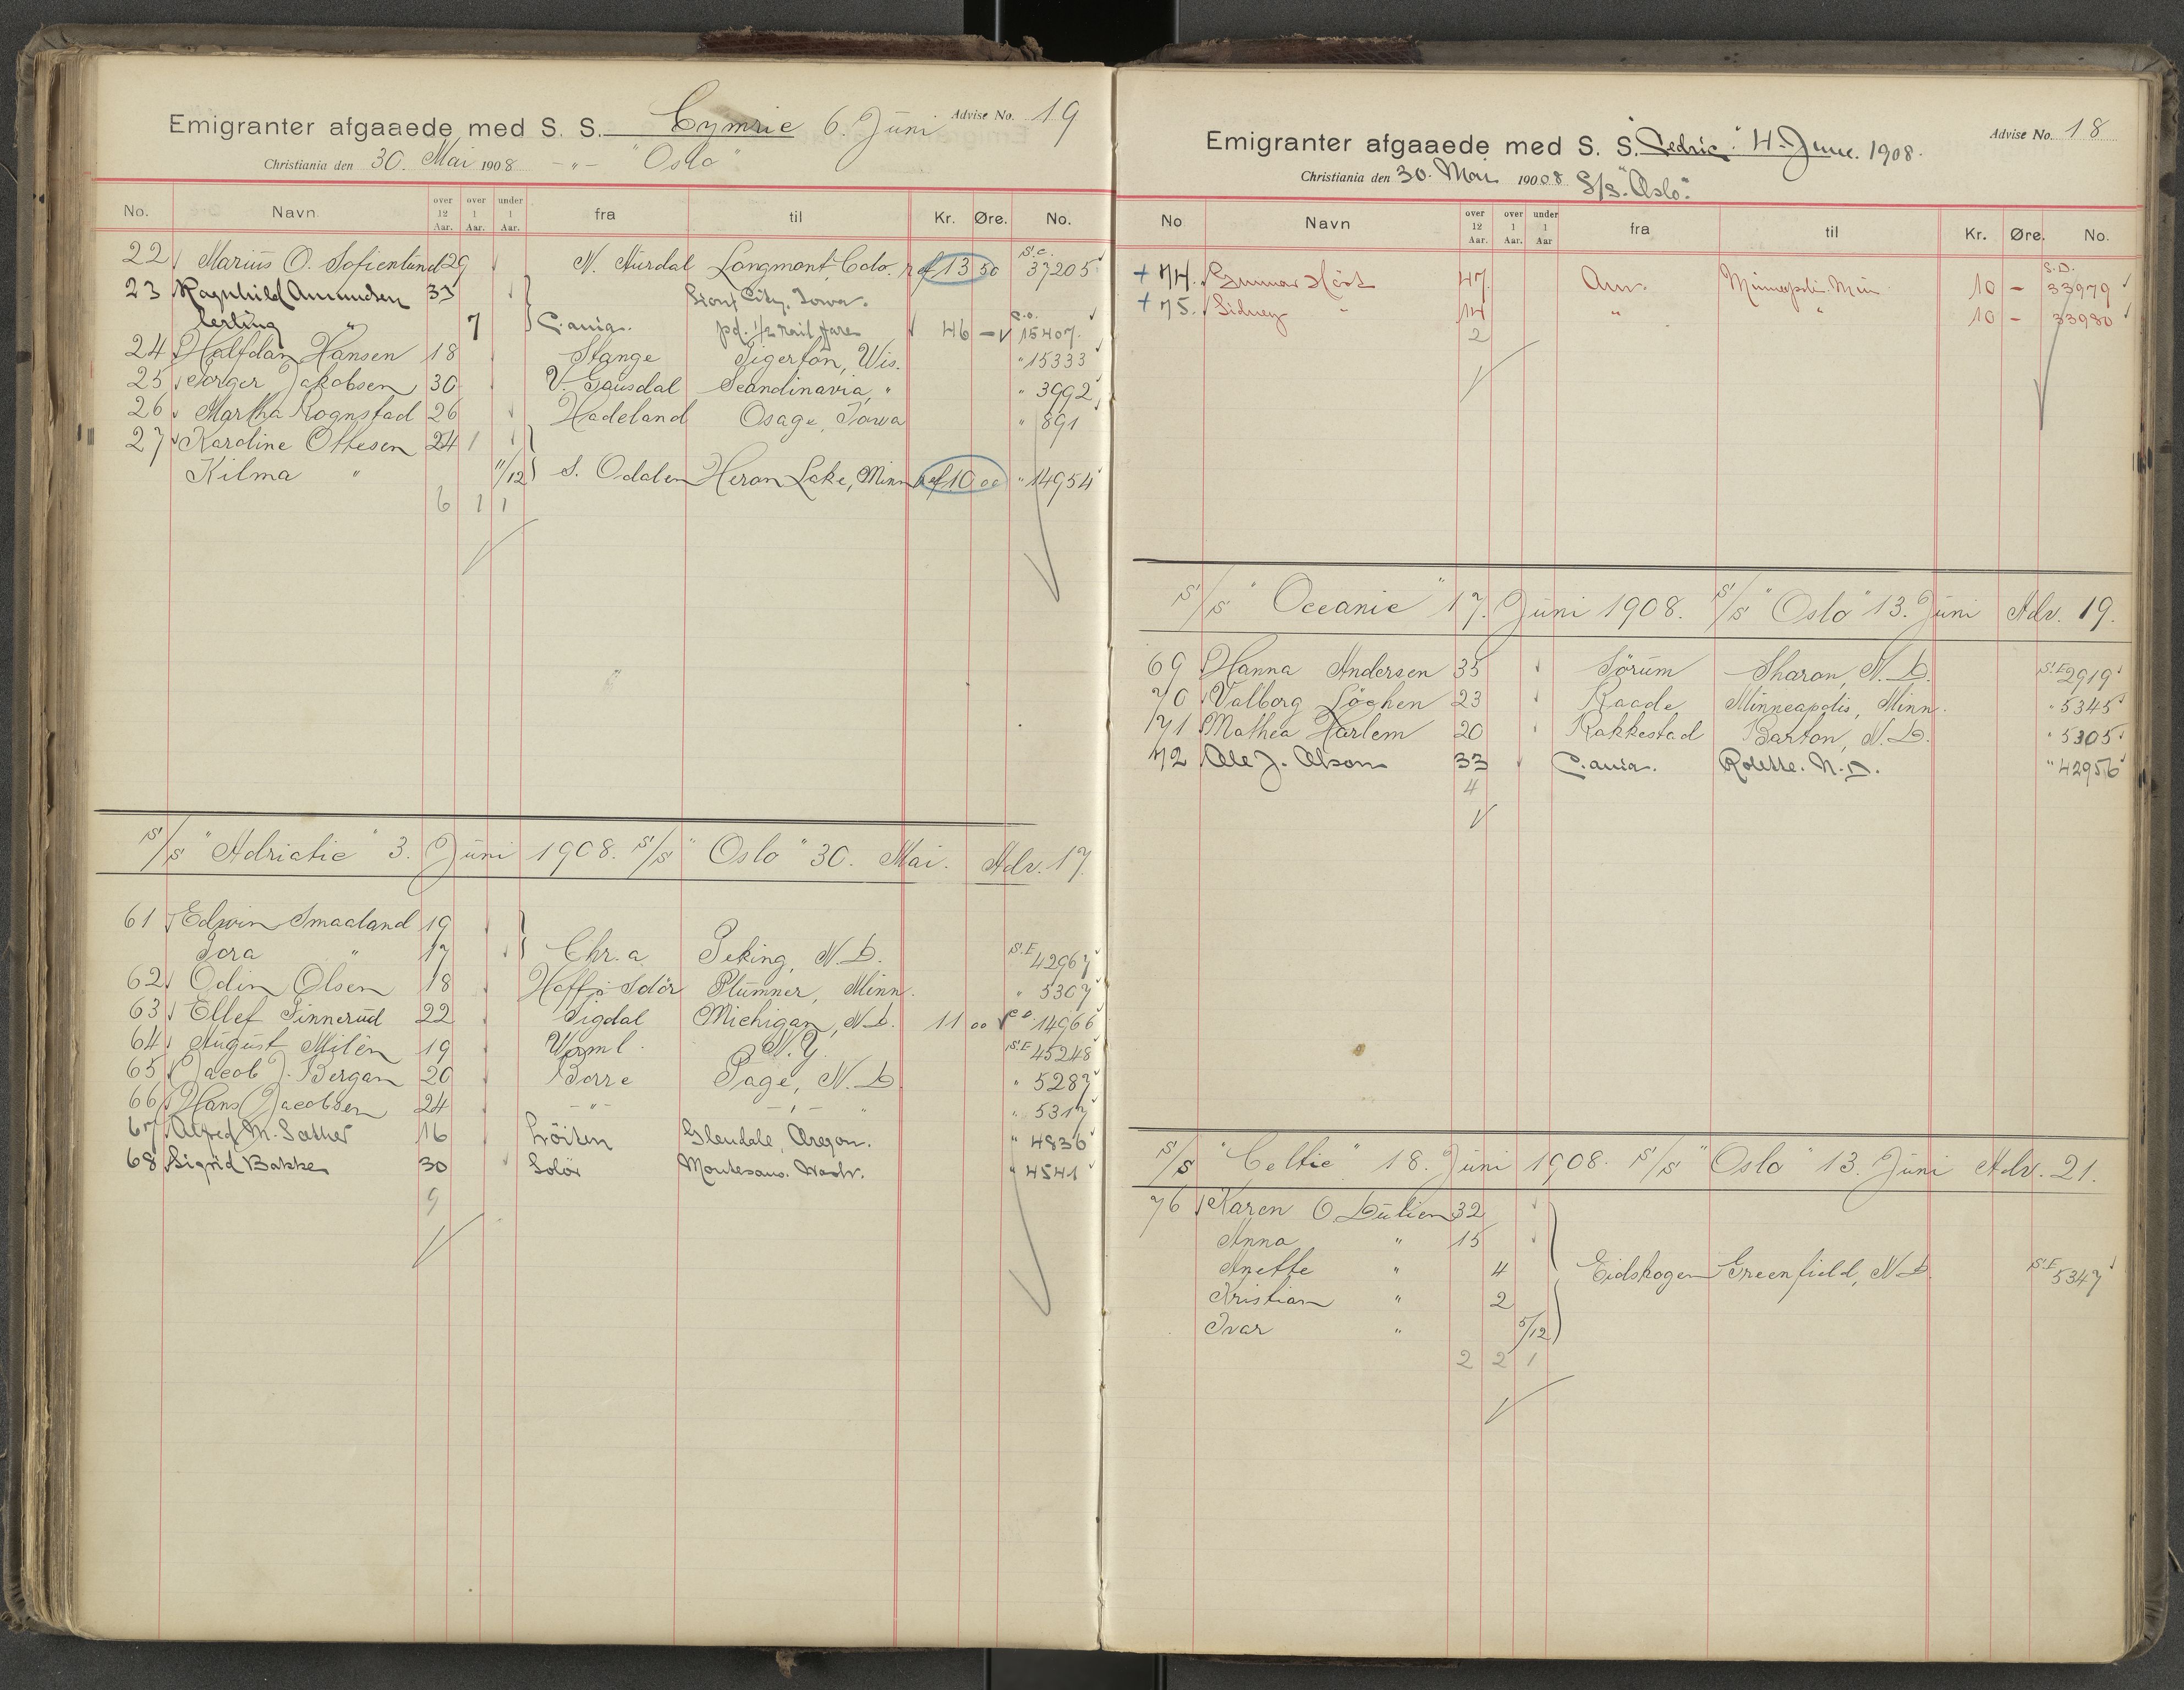 Emigranter afgaaede med S. S. Cymric 6. Juni Advise No. 19
Christiania den 30. Mai 1908 -"- "Oslo"
No. Navn. over 12 Aar. over 1 Aar. under 1 Aar. fra til Kr. Øre. No.
22 Marius O. Sofienlund 29 N. Aurdal Longmont, Colo. ref 13 50 S.C. 37205
23 Ragnhild Amundsen 33 Sioux City. Iowa.
Erling " 7 C.ania. pd. 1/2 rail fare 46 - C.O. 15407.
24 Halfdan Hansen 18 Stange Tigerton, Wis. " 15333
25 Torger Jakobsen 30 V. Gausdal Scandinavia, " " 3992
26 Martha Rognstad 26 Hadeland Osage, Iowa " 891
27 Karoline Ottesen 24 1
Kilma " 11/12 S. Odalen Heron Lake, Minn ref 10 00 " 14954
6 1 1
S/S "Adriatic" 3. Juni 1908. S/S "Oslo" 30. Mai. Adv. 17.
61 Edwin Smaaland 19
Tora " 17 Chr.a Peking, N.D. S.E 42967
62 Odin Olsen 18 Hoff, Solör Plummer, Minn. " 5307
63 Ellef Finnerud 22 Sigdal Michigan, N.D. 11 00 C.O. 14966
64 August Milén 19 Verml. N.Y. S.E 45248
65 Jacob J. Bergan 20 Borre Page, N.D. " 5287
66 Hans Jacobsen 24 -"- -"- " " 5317
67 Alfred M. Sæther 16 Löiten Glendale, Oregon. " 4836
68 Sigrid Bakke 30 Solör Montesano. Wash. " 4541
9
Emigranter afgaaede med S. S. "Cedric" 4. June. 1908. Advise No. 18
Christiania den 30. Mai 1908 S/S. "Oslo."
No Navn over 12 Aar. over 1 Aar. under 1 Aar fra til Kr. Øre. No.
+ 74. Gunnar Höst 47 Am. Minneapolis. Min 10 - S.D. 33979
+ 75. Sidney " 14 " " 10 - 33980
2
S/S "Oceanic" 17. Juni 1908. S/S "Oslo" 13. Juni Adv. 19.
69 Hanna Andersen 35 Sörum Sharon, N.D. S.E 2919
70 Valborg Löchen 23 Raade Minneapolis, Minn. " 5345
71 Mathea Harlem 20 Rakkestad Barton, N.D. " 5305
72 Ole J. Olson 33 C.ania. Rolette. N.D. " 42956
4
S/S "Celtic" 18. Juni 1908. S/S "Oslo" 13. Juni Adv. 21.
76 Karen O. Dulien 32
Anna " 15
Anette " 4 Eidskogen Greenfield, N.D. S.E 5347
Kristian " 2
Ivar " 5/12
2 2 1